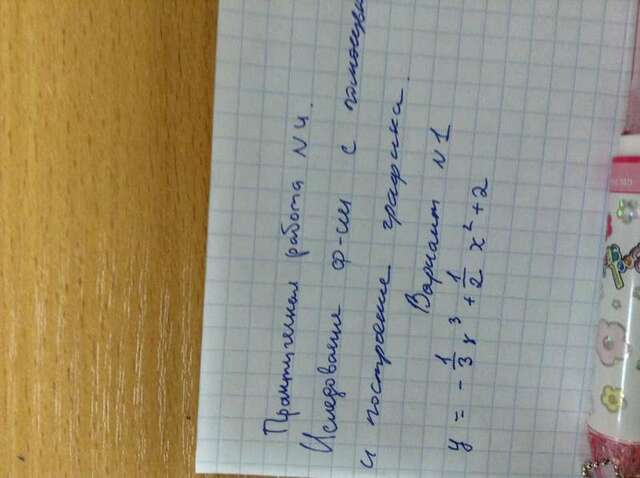 Практическая работа N4.
Исследование ф-ции с помощью
и построение графика.
Вариант N1
y = -1/3 x³ + 1/2 x² + 2